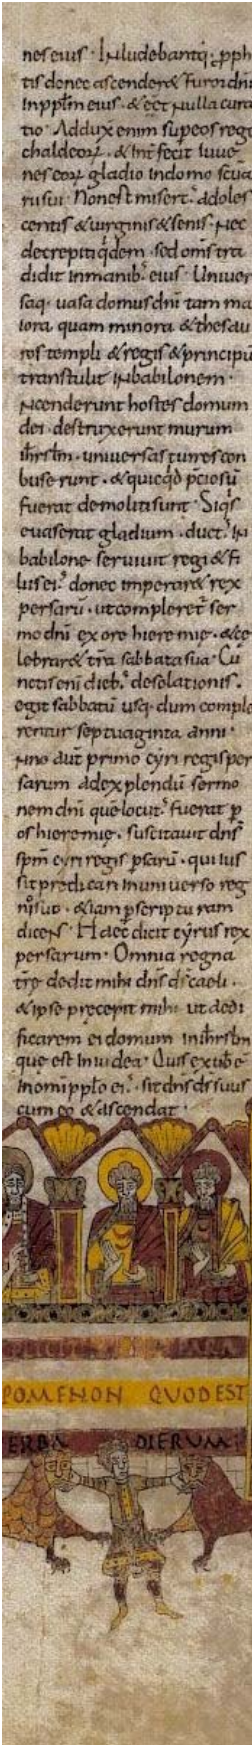 nes eius · Inludebantq; pph
tis donec ascender& furor dni
inpplm eius · & eet nulla cura
tio · Adduxit enim sup eos rege
chaldeoꝝ · & intfecit iuue
nes eoꝝ gladio in domo scua
rii sui · Non est misert' adoles
centis & uirginis & senis · nec
decrepiti qdem · sed oms tra
didit in manib; eius · Uniuer
saq; uasa domus dni tam ma
iora quam minora & thesau
ros templi & regis & principu
transtulit in babilonem ·
incenderunt hostes domum
dei · destruxerunt murum
ihrslm · uniuersas turres con
buserunt · & quicqd pciosu
fuerat demoliti sunt · Siqs
euaserat gladium · duct' in
babilone seruiuit regi & fi
liis ei' · donec imperar& rex
persaru · ut compleret ser
mo dni ex ore hieremie · & ce
lebrar& tra sabbata sua · Cu
nctis eni dieb; desolationis ·
egit sabbatu usq; dum comple
rentur septuaginta anni ·
Anno aut primo cyri regis per
sarum ad explendu sermo
nem dni que locut' fuerat p
os hieremie · suscitauit dns
spm cyri regis psaru · qui ius
sit predicari in uniuerso reg
no suo · & iam p scripturam
dicens · Haec dicit cyrus rex
persarum · Omnia regna
tre dedit mihi dns ds caeli ·
& ipse precepit mihi ut aedi
ficarem ei domum in ihrslm
que est in iudea · Quis ex uobis e
in omi pplo ei' · sit dns ds suus
cum eo & ascendat ·
POMENON QUOD EST
ERBA DIERUM